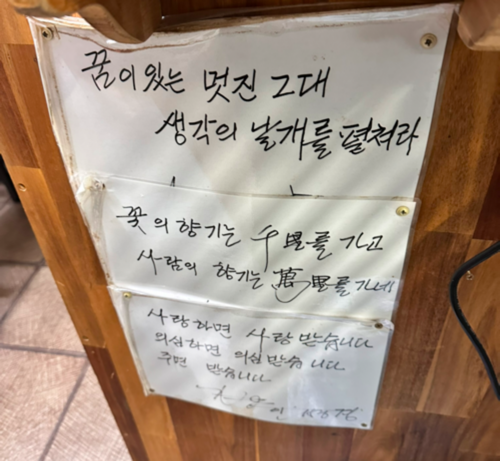 꿈이 있는 멋진 그대
생각의 날개를 펼쳐라
꽃의 향기는 千里를 가고
사람의 향기는 萬里를 가네
사랑하면 사랑 받습니다
의심하면 의심 받습니다
주면 받습니다